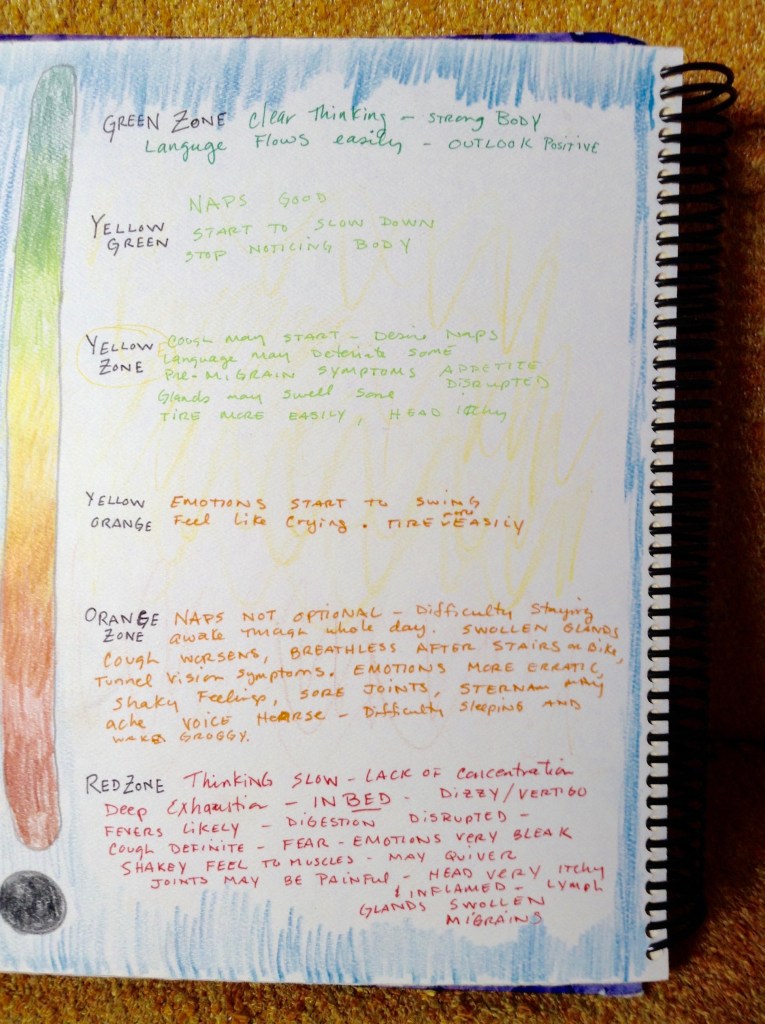 GREEN ZONE Clear Thinking - STRONG BODY
Languge Flows easily - OUTLOOK POSITIVE
NAPS GOOD
YELLOW GREEN START TO SLOW DOWN
STOP NOTICING BODY
YELLOW ZONE Cough may START - Desire Naps
Language may Deteriate some
PRE-MIGRAIN SYMPTOMS APPETITE
Glands may swell some DISRUPTED
TIRE MORE EASILY, HEAD itchy
YELLOW EMOTIONS START TO SWING
ORANGE Feel like Crying. TIRE more EASILY
ORANGE ZONE NAPS NOT OPTIONAL - Difficulty Staying
awake through whole day. SWOLLEN GLANDS
COUGH WORSENS, BREATHLESS AFTER STAIRS or Bike,
Tunnel Vision Symptoms. EMOTIONS MORE ERRATIC,
Shaky Feelings, SORE JOINTS, STERNAM may
ache VOICE HORSE - Difficulty Sleeping AND
WAKE GROGGY.
RED ZONE Thinking SLOW - LACK OF Concentration
Deep Exhaustion - IN BED - DIZZY/VERTIGO
FEVERS LIKELY - DIGESTION DISRUPTED -
COUGH DEFINITE - FEAR - EMOTIONS VERY BLEAK
SHAKEY FEEL TO MUSCLES - MAY QUIVER
JOINTS MAY BE PAINFUL - HEAD VERY ITCHY
& INFLAMED - LYMPH
GLANDS SWOLLEN
MIGRAINS